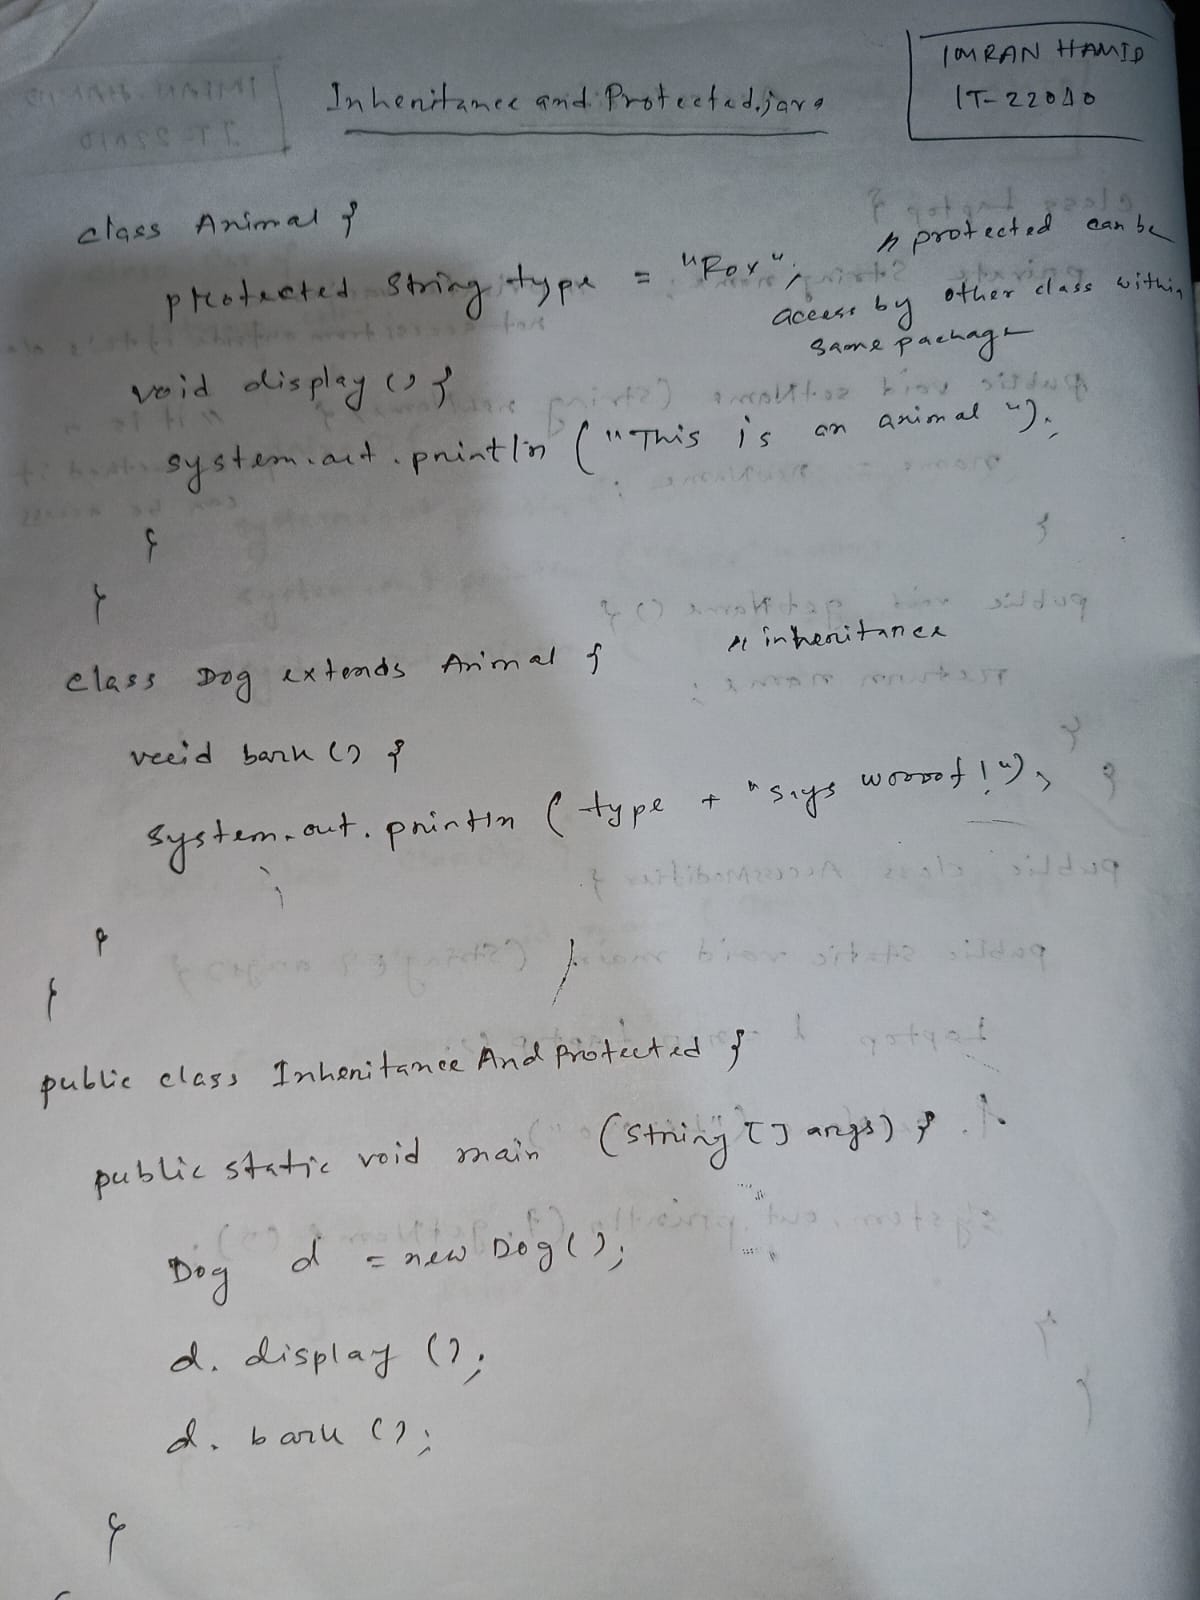 IMRAN HAMID
IT-22010
Inheritance and Protected.java
class Animal {
protected String type = "Rox"; // protected can be
access by other class within
same package
void display () {
system.out.println ("This is an animal");
}
}
class Dog extends Animal { // inheritance
void bark () {
system.out.println (type + "says wooof!");
}
}
public class Inheritance And Protected {
public static void main (String [] args) {
Dog d = new Dog();
d. display ();
d. bark ();
}